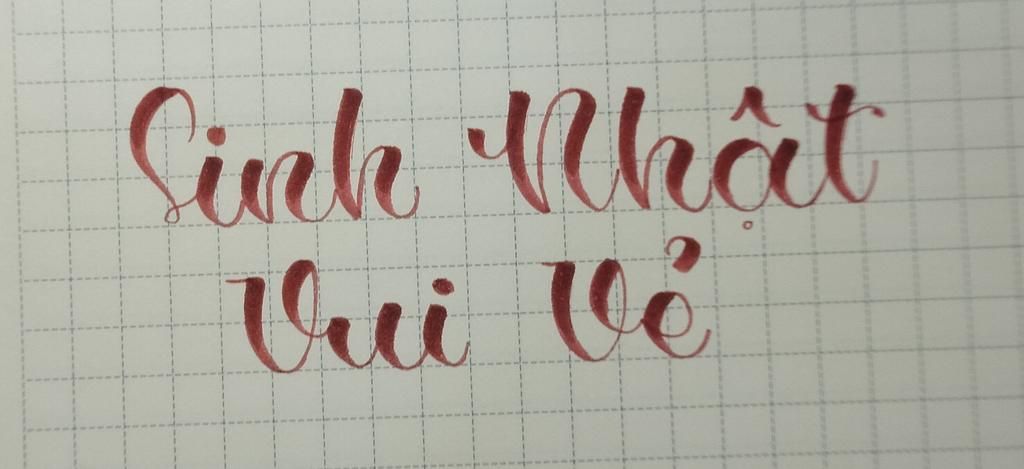 Sinh Nhật
Vui Vẻ